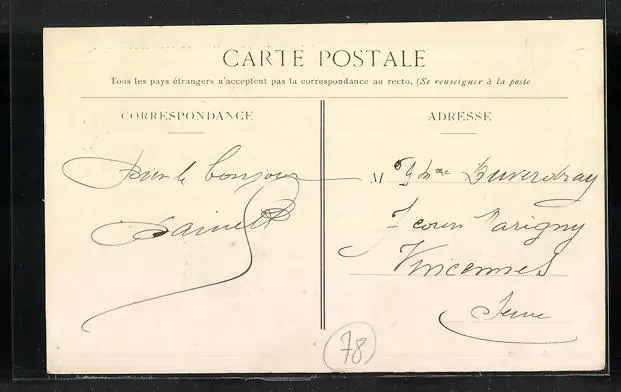 CARTE POSTALE
Tous les pays étrangers n'acceptent pas la correspondance au recto. (Se renseigner à la poste
CORRESPONDANCE
ADRESSE
bonjour
M Duverdray
7 cours Marigny
Vincennes
Seine
78